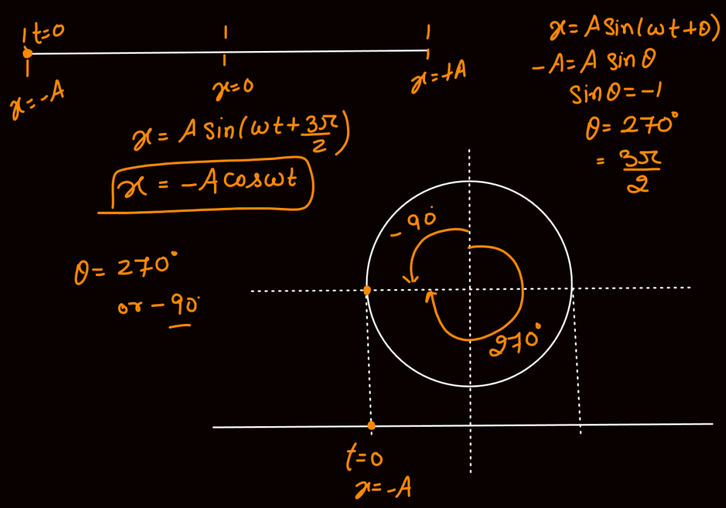 t=0
x=-A
x=0
x=+A
x = A sin(ωt+θ)
-A = A sinθ
sinθ = -1
θ = 270°
= 3π/2
x = A sin(ωt + 3π/2)
x = -A cosωt
θ = 270°
or -90°
-90°
270°
t=0
x=-A